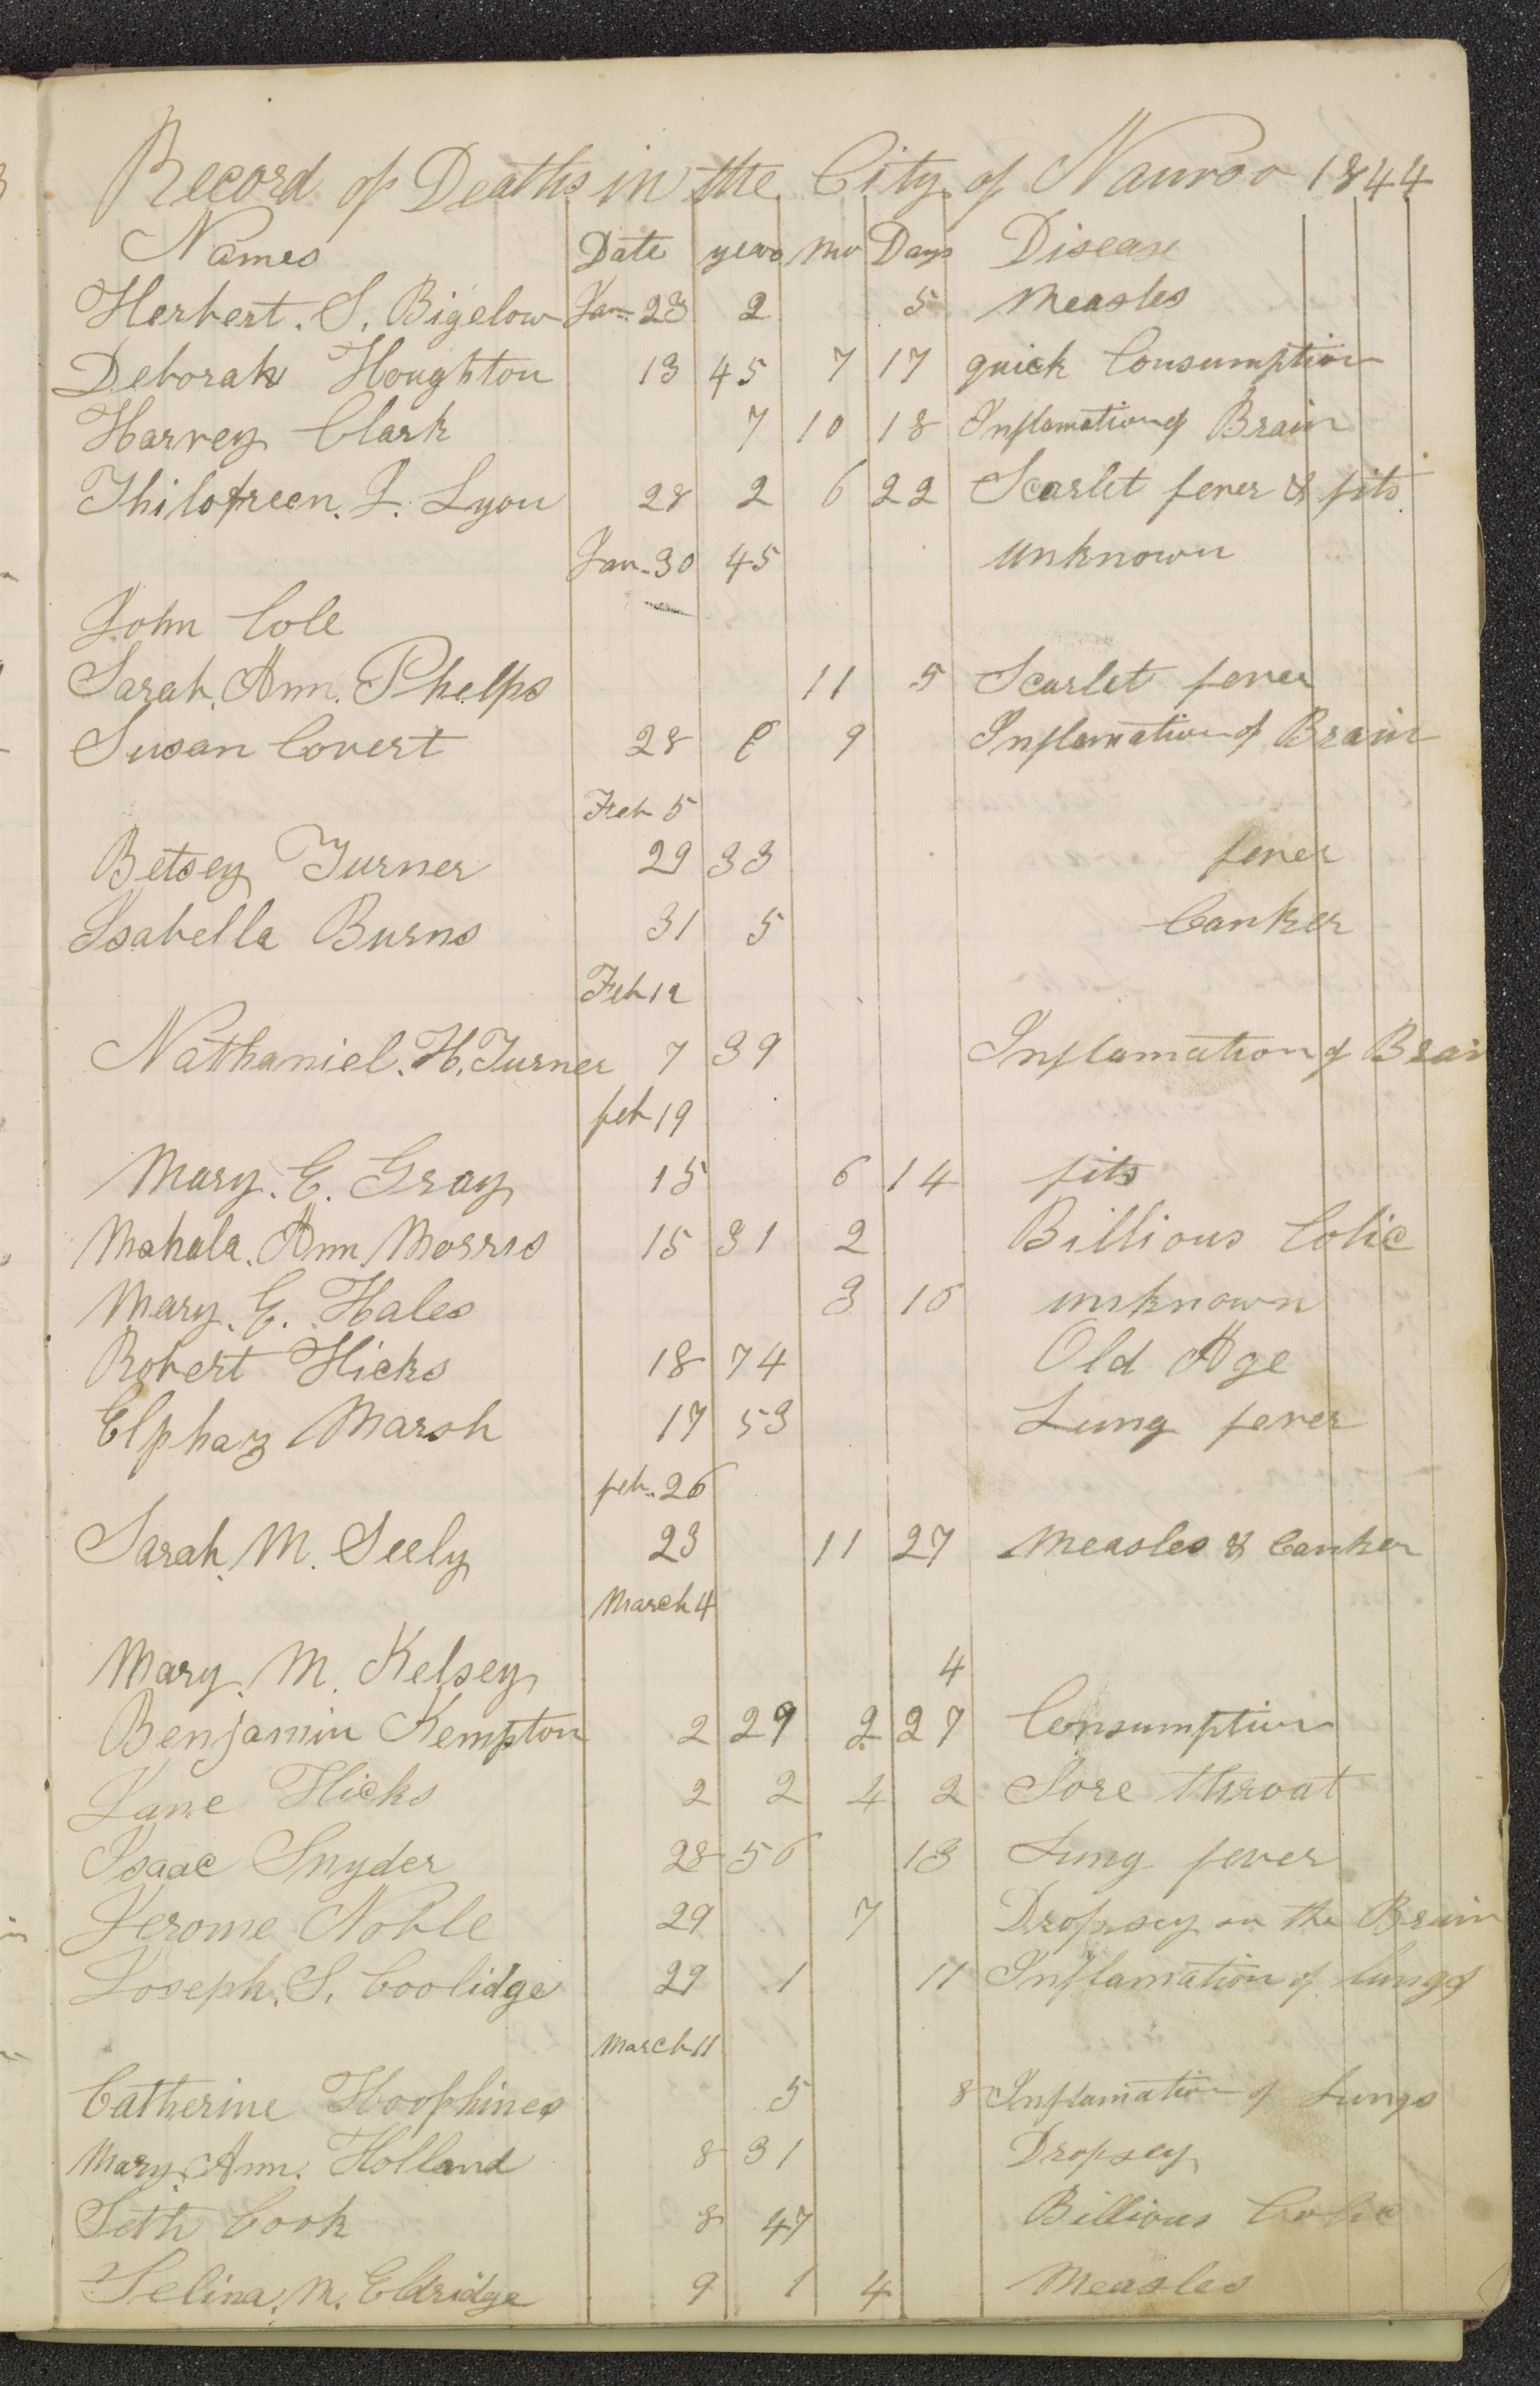 Record of Deaths in the City of Nauvoo 1844
Names Date years mo Days Disease
Herbert. S. Bigelow Jan 23 2 5 Measles
Deborah Houghton 13 45 7 17 quick Consumption
Harvey Clark 7 10 18 Inflamation of Brain
J. Lyon 28 2 6 22 Scarlet fever & fits.
Jan. 30 45 unknown
John Cole
Sarah. Ann. Phelps 11 5 Scarlet fever
Susan Covert 28 9 Inflamation of Brain
Feb 5
Betsey Turner 29 33 fever
Isabella Burns 31 5 Canker
Feb 12
Nathaniel. H. Turner 7 39 Inflamation of Brai
feb 19
Mary. E. Gray 15 6 14 fits
Mahala. Ann Morris 15 31 2 Billious Colic
Mary. E. Hales 3 16 unknown
Robert Hicks 18 74 Old Age
Elphaz Marsh 17 53 Lung fever
feb. 26
Sarah. M. Seely 23 11 27 Measles & Canker
March 4
Mary. M. Kelsey 4
Benjamin Kempton 2 29 2 27 Consumption
Jane Hicks 2 2 4 2 Sore throat
Isaac Snyder 28 56 13 Lung fever
Jerome Noble 29 7 Dropsey on the Brain
Joseph. S. Coolidge 29 1 11 Inflamation of lungs
March 11
Catherine Hoophines 5 8 Inflamation of Lungs
Mary. Ann. Holland 8 31 Dropsey
Seth Cook 8 47 Billious Colic
Selina. M. Eldridge 9 1 4 Measles